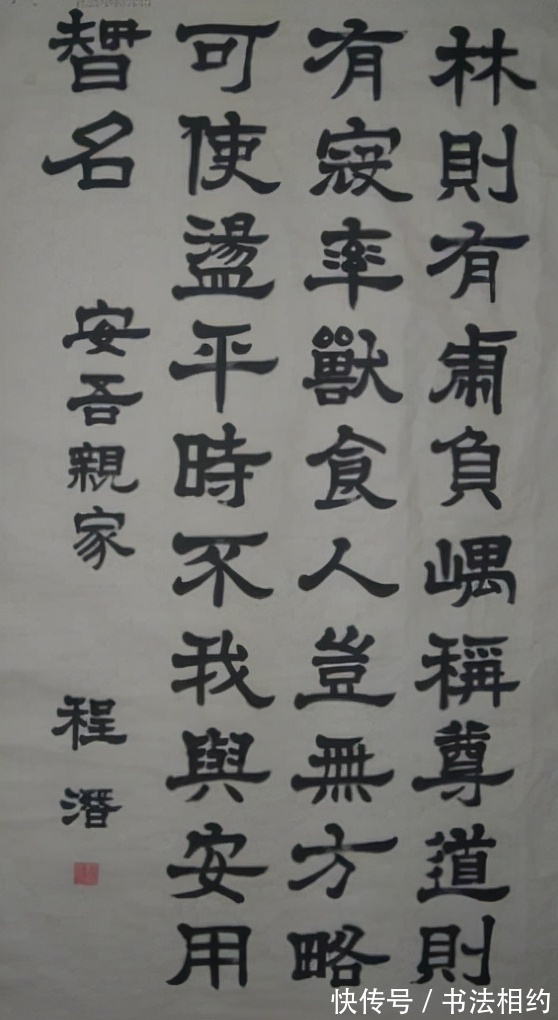 林則有虎負嵎稱尊道則
有寇率獸食人豈無方略
可使盪平時不我與安用
智名
安吾親家
程潛
快传号 / 书法相约